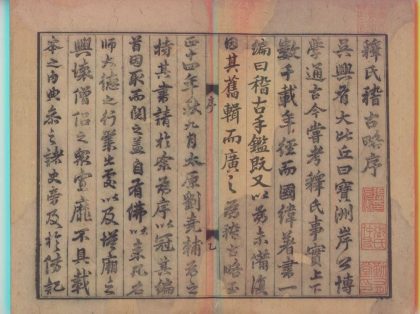 釋氏稽古略序
吳興有大比丘曰寶洲岸公博
學通古今嘗考釋氏事實上下
數千載年經而國緯著書一
編曰稽古手鑑既又以為未備復
因其舊輯而廣之為稽古略
序
正十四年秋九月太原劉堯輔
持其書請於余為序以冠其編
首因取而閱之蓋自有佛以來凡名
師大德之行業出處以及塔廟之
興壞僧侶之眾寡靡不具載
本之內典參之諸史旁及於傳記